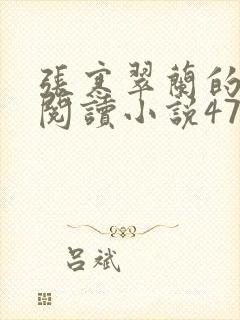 張寒翠蘭的
閱讀小說47
呂斌